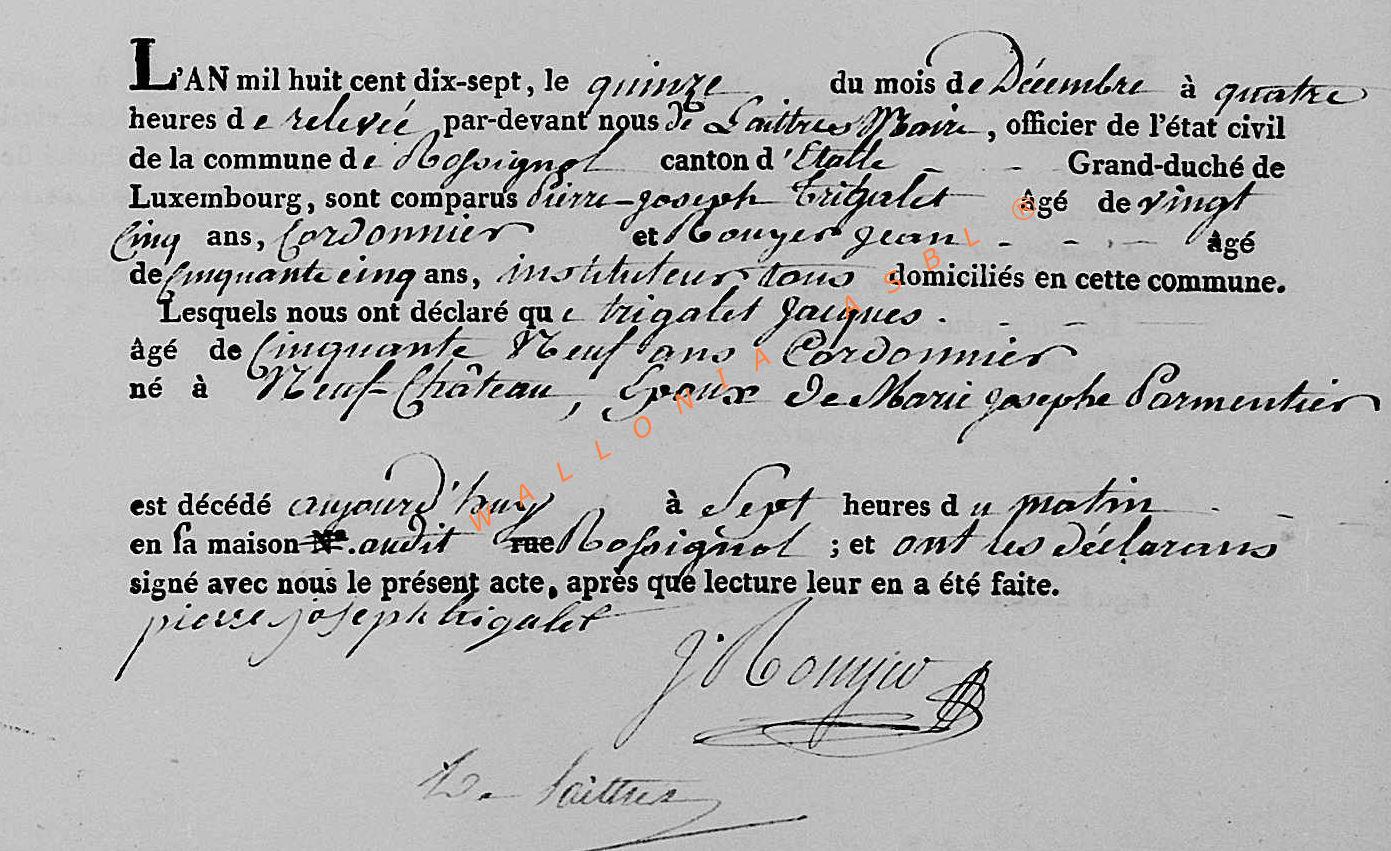 L'AN mil huit cent dix-sept, le quinze du mois de Décembre à quatre
heures de relevée par-devant nous de Laittres Maire, officier de l'état civil
de la commune de Rossignol canton d'Etalle - - Grand-duché de
Luxembourg, sont comparus Pierre-Joseph trigalet âgé de vingt
Cinq ans, Cordonnier et Rouyer Jean - - - âgé
de Cinquante cinq ans, instituteur tous domiciliés en cette commune.
Lesquels nous ont déclaré que trigalet Jacques - - -
âgé de Cinquante Neuf ans Cordonnier
né à Neuf-Château, Epoux de Marie Josephe Parmentier
est décédé aujourd'huy à Sept heures du matin - -
en sa maison Nº. audit rue Rossignol ; et ont les déclarans
signé avec nous le présent acte, après que lecture leur en a été faite.
pierre joseph trigalet
J Rouyer
De Laittres
WALLONIA ASBL ®